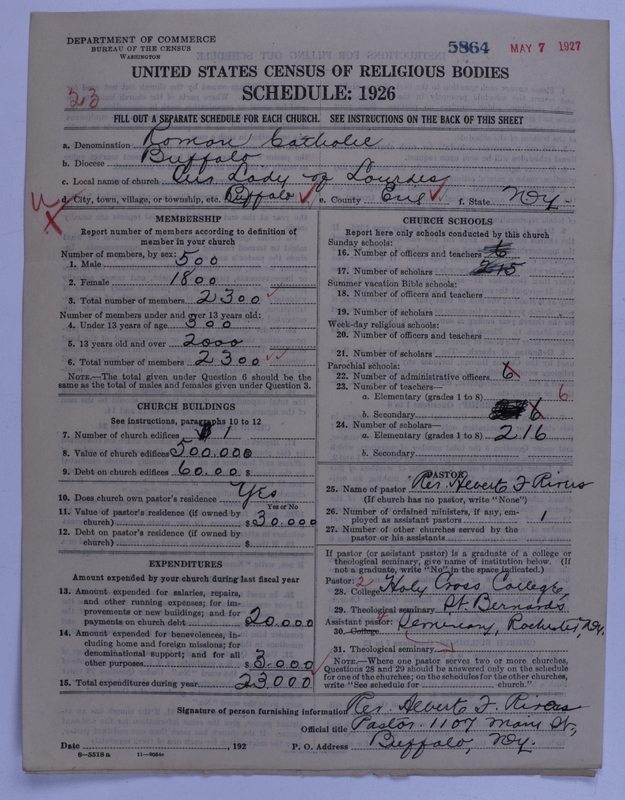 DEPARTMENT OF COMMERCE
BUREAU OF THE CENSUS
WASHINGTON
5864 MAY 7 1927
UNITED STATES CENSUS OF RELIGIOUS BODIES
SCHEDULE: 1926
23
FILL OUT A SEPARATE SCHEDULE FOR EACH CHURCH. SEE INSTRUCTIONS ON THE BACK OF THIS SHEET
a. Denomination Roman Catholic
b. Diocese Buffalo
c. Local name of church Our Lady of Lourdes
d. City, town, village, or township, etc. Buffalo e. County Erie f. State Ny-
MEMBERSHIP
Report number of members according to definition of
member in your church
Number of members, by sex:
1. Male 500
2. Female 1800
3. Total number of members 2300
Number of members under and over 13 years old:
4. Under 13 years of age 300
5. 13 years old and over 2000
6. Total number of members 2300
NOTE.—The total given under Question 6 should be the
same as the total of males and females given under Question 3.
CHURCH BUILDINGS
See instructions, paragraphs 10 to 12
7. Number of church edifices 1
8. Value of church edifices 500.000
9. Debt on church edifices 60.00. $
10. Does church own pastor's residence Yes
Yes or No
11. Value of pastor's residence (if owned by
church) $ 30.000
12. Debt on pastor's residence (if owned by
church) $
EXPENDITURES
Amount expended by your church during last fiscal year
13. Amount expended for salaries, repairs,
and other running expenses; for im-
provements or new buildings; and for
payments on church debt 20.000
14. Amount expended for benevolences, in-
cluding home and foreign missions; for
denominational support; and for all
other purposes $ 3.000
15. Total expenditures during year 23000
CHURCH SCHOOLS
Report here only schools conducted by this church
Sunday schools:
16. Number of officers and teachers 6
17. Number of scholars 215
Summer vacation Bible schools:
18. Number of officers and teachers
19. Number of scholars
Week-day religious schools:
20. Number of officers and teachers
21. Number of scholars
Parochial schools:
22. Number of administrative officers 6
23. Number of teachers—
a. Elementary (grades 1 to 8) 6
b. Secondary 6
24. Number of scholars—
a. Elementary (grades 1 to 8) 216
b. Secondary
PASTOR
25. Name of pastor Rev. Albert F Rivers
(If church has no pastor, write "None")
26. Number of ordained ministers, if any, em-
ployed as assistant pastors 1
27. Number of other churches served by the
pastor or his assistants
If pastor (or assistant pastor) is a graduate of a college or
theological seminary, give name of institution below. (If
not a graduate, write "No" in the space indicated.)
Pastor: 2
28. College Holy Cross College,
29. Theological seminary St. Bernards
Assistant pastor: Seminary, Rochester, Ny.
30. College
31. Theological seminary
NOTE.—Where one pastor serves two or more churches,
Questions 28 and 29 should be answered only on the schedule
for one of the churches; on the schedules for the other churches,
write "See schedule for church."
Signature of person furnishing information Rev. Albert F. Rivers
Official title Pastor. 1107 Main St,
Date , 192 P. O. Address Buffalo, Ny.
8—5518a